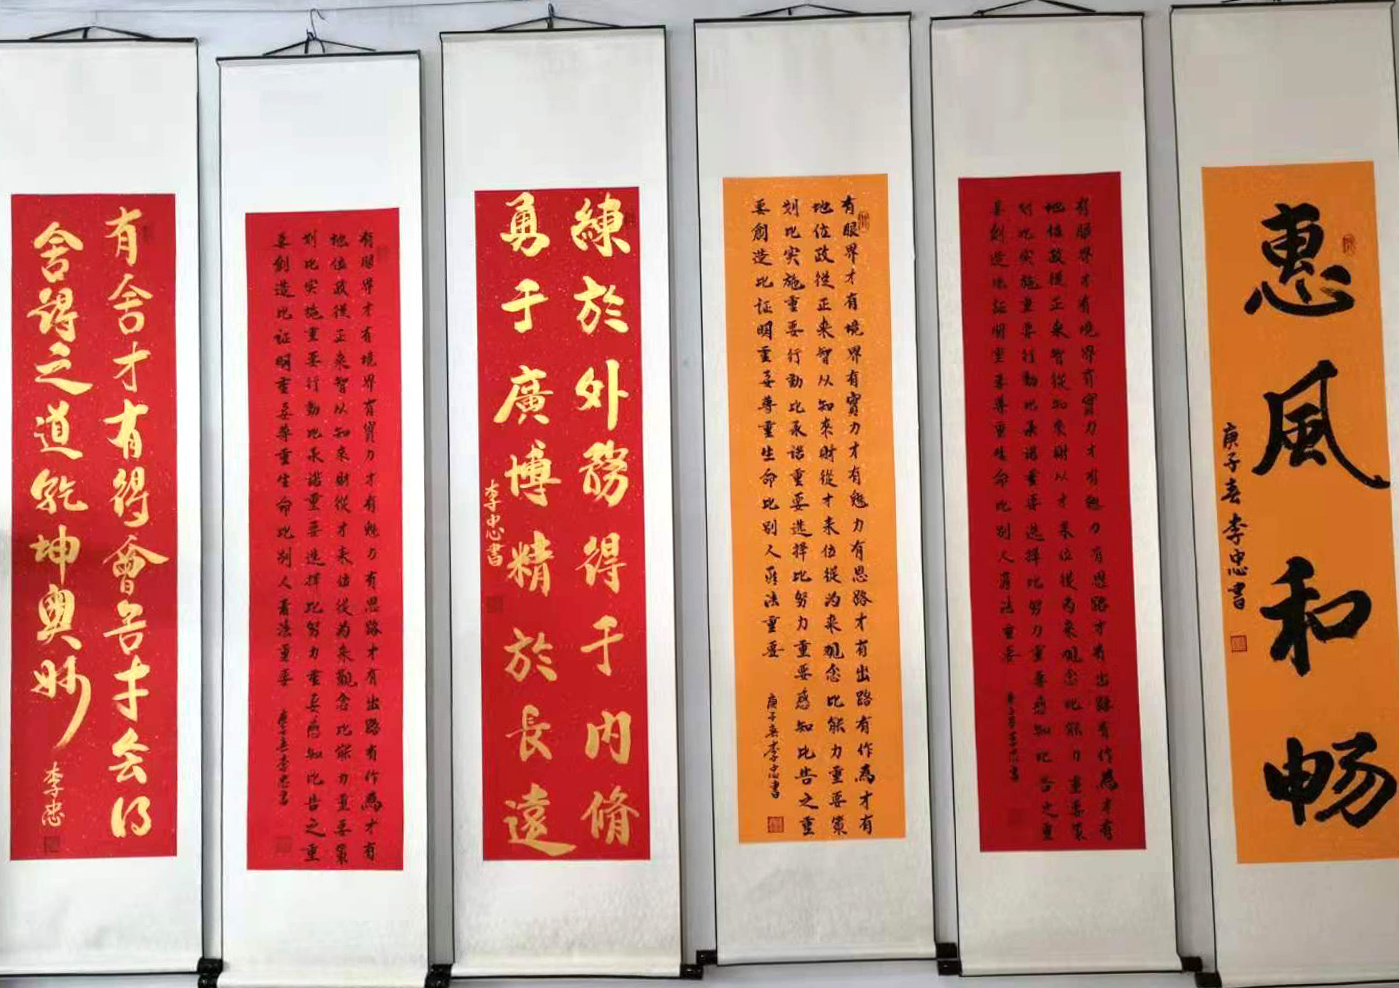 有舍才有得會舍才会得
舍得之道乾坤奥妙
李忠
有眼界才有境界有實力才有魅力有思路才有出路有作為才有
地位政從正来智以知来財從才来位從为来觀念比能力重要策
划比实施重要行動比承诺重要选择比努力重要感知比告之重
要創造比证明重要尊重生命比别人看法重要
庚子春李忠書
練於外務得于内脩
勇于廣博精於長遠
李忠書
有眼界才有境界有實力才有魅力有思路才有出路有作為才有
地位政從正来智以知来財從才来位從为来觀念比能力重要策
划比实施重要行動比承诺重要选择比努力重要感知比告之重
要創造比证明重要尊重生命比别人看法重要
庚子春李忠書
有眼界才有境界有實力才有魅力有思路才有出路有作為才有
地位政從正来智從知来財以才来位從为来觀念比能力重要策
划比实施重要行動比承诺重要选择比努力重要感知比告之重
要創造比证明重要尊重生命比别人看法重要
惠風和畅
庚子春李忠書